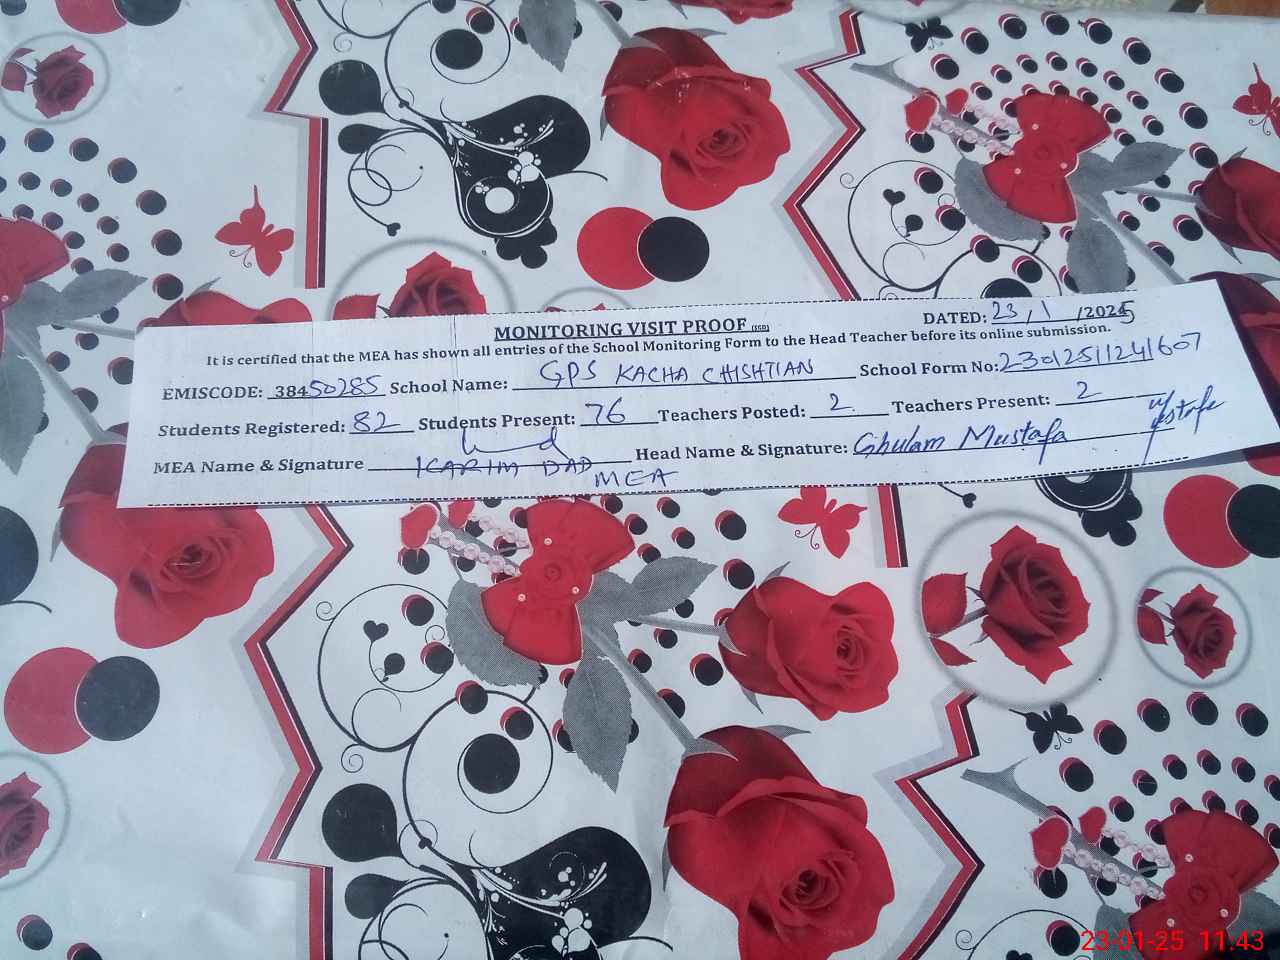 MONITORING VISIT PROOF (SSB)
DATED: 23/1/2025
It is certified that the MEA has shown all entries of the School Monitoring Form to the Head Teacher before its online submission.
EMISCODE: 38450285 School Name: GPS KACHA CHISHTIAN School Form No: 23012511241607
Students Registered: 82 Students Present: 76 Teachers Posted: 2 Teachers Present: 2
MEA Name & Signature KARIM DAD Head Name & Signature: Ghulam Mustafa
MEA
23-01-25 11.43